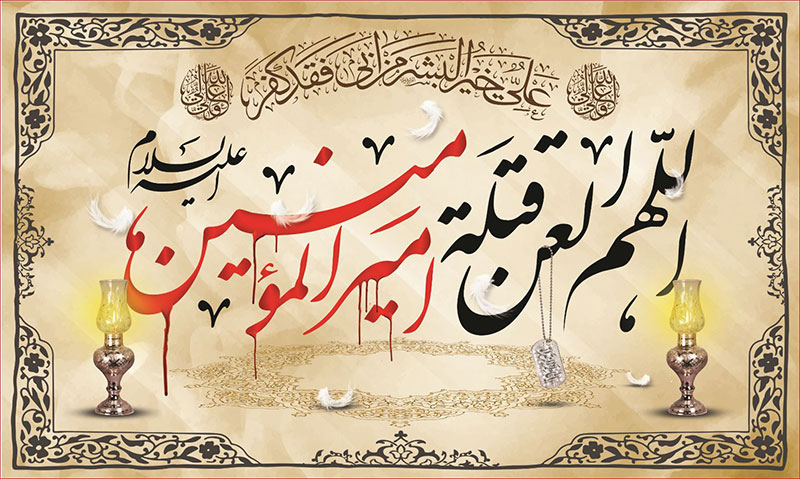 علي خير البشر من أبى فقد كفر
اللهم العن قتلة امير المؤمنين
عليه السلام